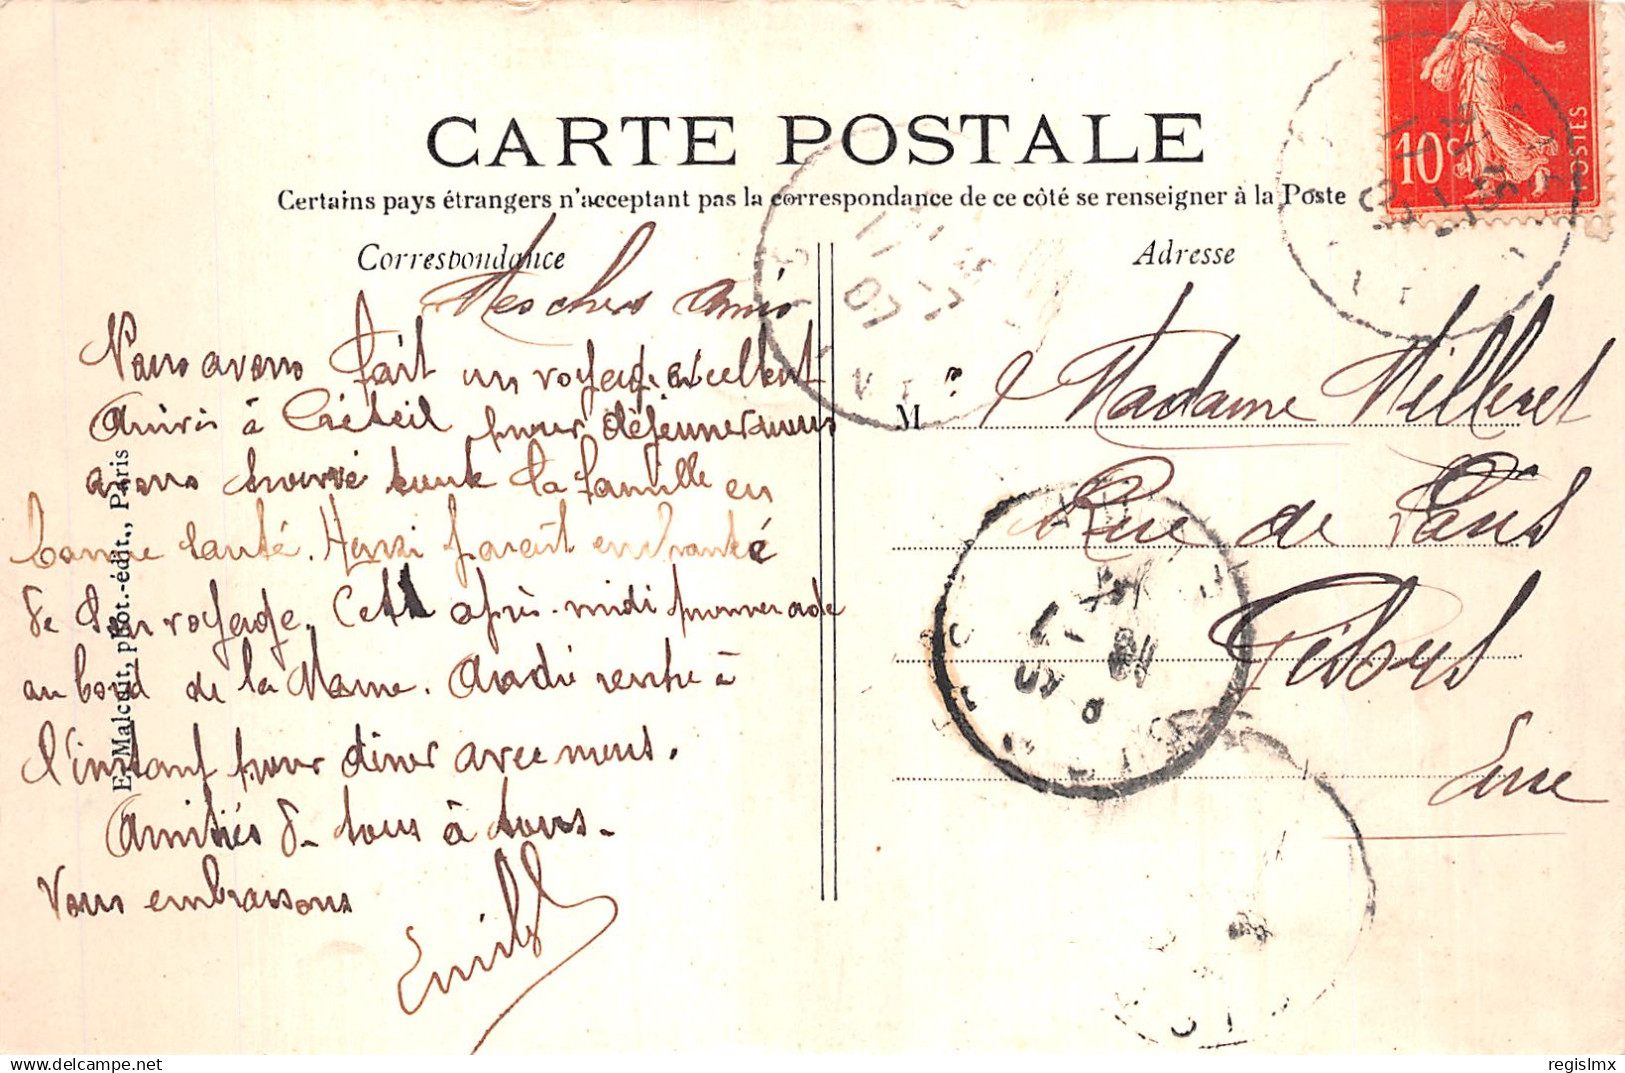 CARTE POSTALE
Certains pays étrangers n'acceptent pas la correspondance de ce côté se renseigner à la Poste
Correspondance
Adresse
Mes chers Amis
Nous avons fait un voyage excellent
Arrivés à Créteil pour déjeuner nous
avons trouvé toute la famille en
bonne santé. Henri paraît enchanté
de son voyage. Cet après-midi promenade
au bord de la Marne. André rentre à
l'instant pour dîner avec nous.
Amitiés de tous à tous.
Vous embrassons
Emile
M
Madame Milleret
Rue de Paris
Eure
E. Malcuit, phot.-édit., Paris
10c
POSTES
07
regislmx